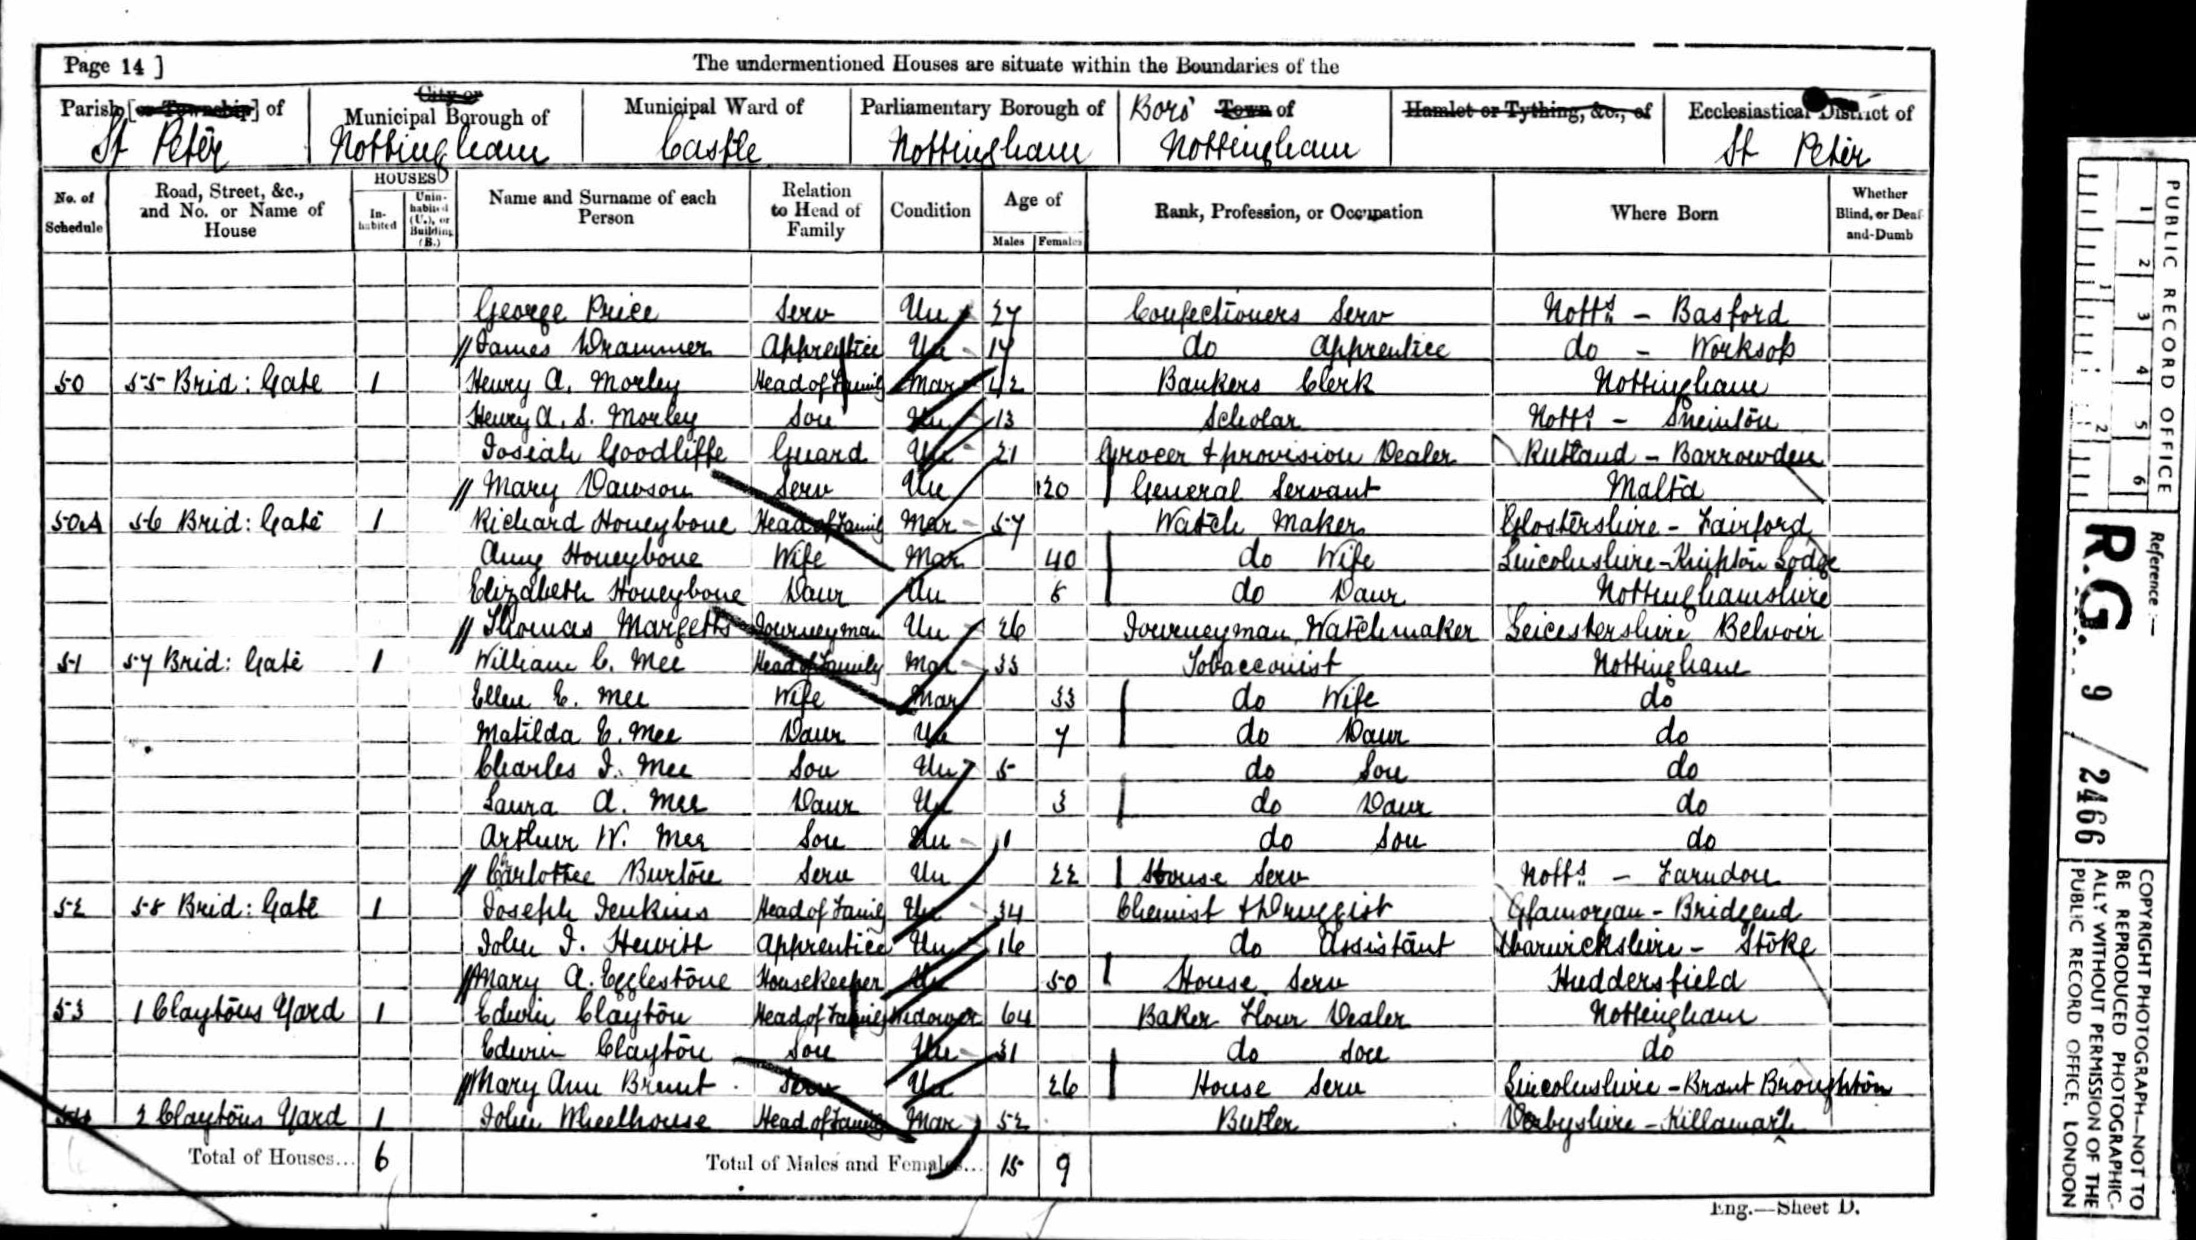 Page 14 ]
The undermentioned Houses are situate within the Boundaries of the
Parish [or Township] of
City or
Municipal Borough of
Municipal Ward of
Parliamentary Borough of
Boro' Town of
Hamlet or Tything, &c., of
Ecclesiastical District of
St Peter
Nottingham
Castle
Nottingham
Nottingham
St Peter
No. of Schedule
Road, Street, &c., and No. or Name of House
HOUSES
Inhabited
Uninhabited (U.), or Building (B.)
Name and Surname of each Person
Relation to Head of Family
Condition
Age of
Males
Females
Rank, Profession, or Occupation
Where Born
Whether Blind, or Deaf-and-Dumb
George Price Serv Un 27 Confectioners Serv Notts - Basford
James Drammer Apprentice Un 17 do apprentice do - Worksop
50 55 Brid: Gate 1 Henry A. Morley Head of Family Mar 42 Bankers Clerk Nottingham
Henry A. S. Morley Son Un 13 Scholar Notts - Sneinton
Josiah Goodliffe Guard Un 21 Grocer & provision Dealer Rutland - Barrowden
Mary Dawson Serv Un 20 General Servant Malta
50A 56 Brid: Gate 1 Richard Honeybone Head of Family Mar 57 Watch Maker Glostershire - Fairford
Amy Honeybone Wife Mar 40 do Wife Lincolnshire - Knipton Lodge
Elizabeth Honeybone Daur Un 8 do Daur Nottinghamshire
Thomas Margetts Journeyman Un 26 Journeyman Watchmaker Leicestershire Belvoir
51 57 Brid: Gate 1 William C. Mee Head of Family Mar 33 Tobacconist Nottingham
Ellen E. Mee Wife Mar 33 do Wife do
Matilda E. Mee Daur Un 7 do Daur do
Charles J. Mee Son Un 5 do Son do
Laura A. Mee Daur Un 3 do Daur do
Arthur W. Mee Son Un 1 do Son do
Carlottee Burton Serv Un 22 House Serv Notts - Farndon
52 58 Brid: Gate 1 Joseph Jenkins Head of Family Un 34 Chemist & Druggist Glamorgan - Bridgend
John J. Hewitt Apprentice Un 16 do Assistant Warwickshire - Stoke
Mary A. Egglestone Housekeeper Un 50 House Serv Huddersfield
53 1 Claytons Yard 1 Edwin Clayton Head of Family Widower 64 Baker Flour Dealer Nottingham
Edwin Clayton Son Un 31 do Son do
Mary Ann Brunt Serv Un 26 House Serv Lincolnshire - Brant Broughton
54 2 Claytons Yard 1 John Wheelhouse Head of Family Mar 52 Butler Derbyshire - Killamarsh
Total of Houses... 6 Total of Males and Females... 15 9
Eng.—Sheet D.
PUBLIC RECORD OFFICE
1 2 3 4 5 6
1 2
Reference :—
R.G. 9 / 2466
COPYRIGHT PHOTOGRAPH—NOT TO
BE REPRODUCED PHOTOGRAPHIC-
ALLY WITHOUT PERMISSION OF THE
PUBLIC RECORD OFFICE, LONDON